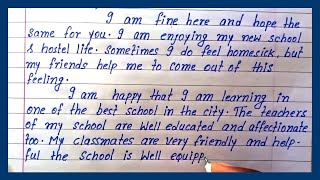 I am fine here and hope the
same for you. I am enjoying my new school
& hostel life. Sometimes I do feel homesick, but
my friends help me to come out of this
feeling.
I am happy that I am learning in
one of the best school in the city. The teachers
of my school are well educated and affectionate
too. My classmates are very friendly and help-
ful the school is well equipp